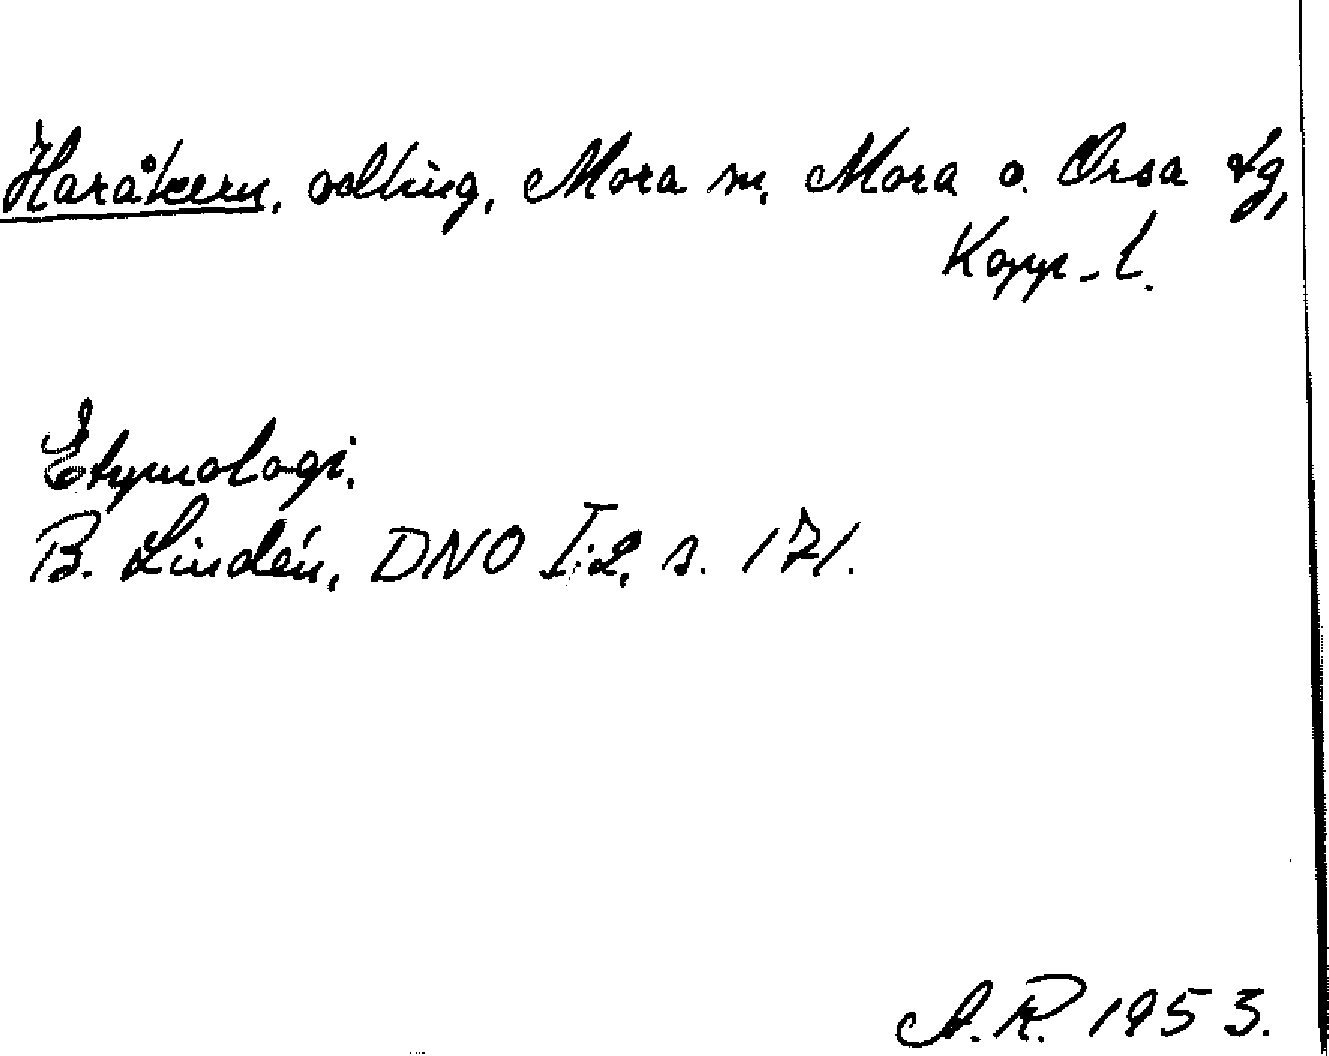 Haråkern, odling, Mora sn, Mora o. Orsa tg,
Kopp. l.
Etymologi.
B. Lindén, DNO I:2, s. 171.
A. R. 1953.